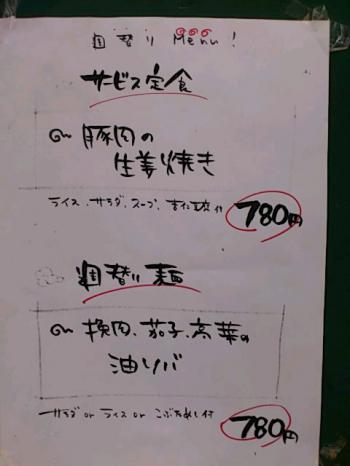 週替り Menu!
サービス定食
豚肉の
生姜焼き
ライス、サラダ、スープ、杏仁豆腐付
780円
週替り麺
挽肉、茄子、高菜の
油ソバ
サラダ or ライス or こぶためし付
780円